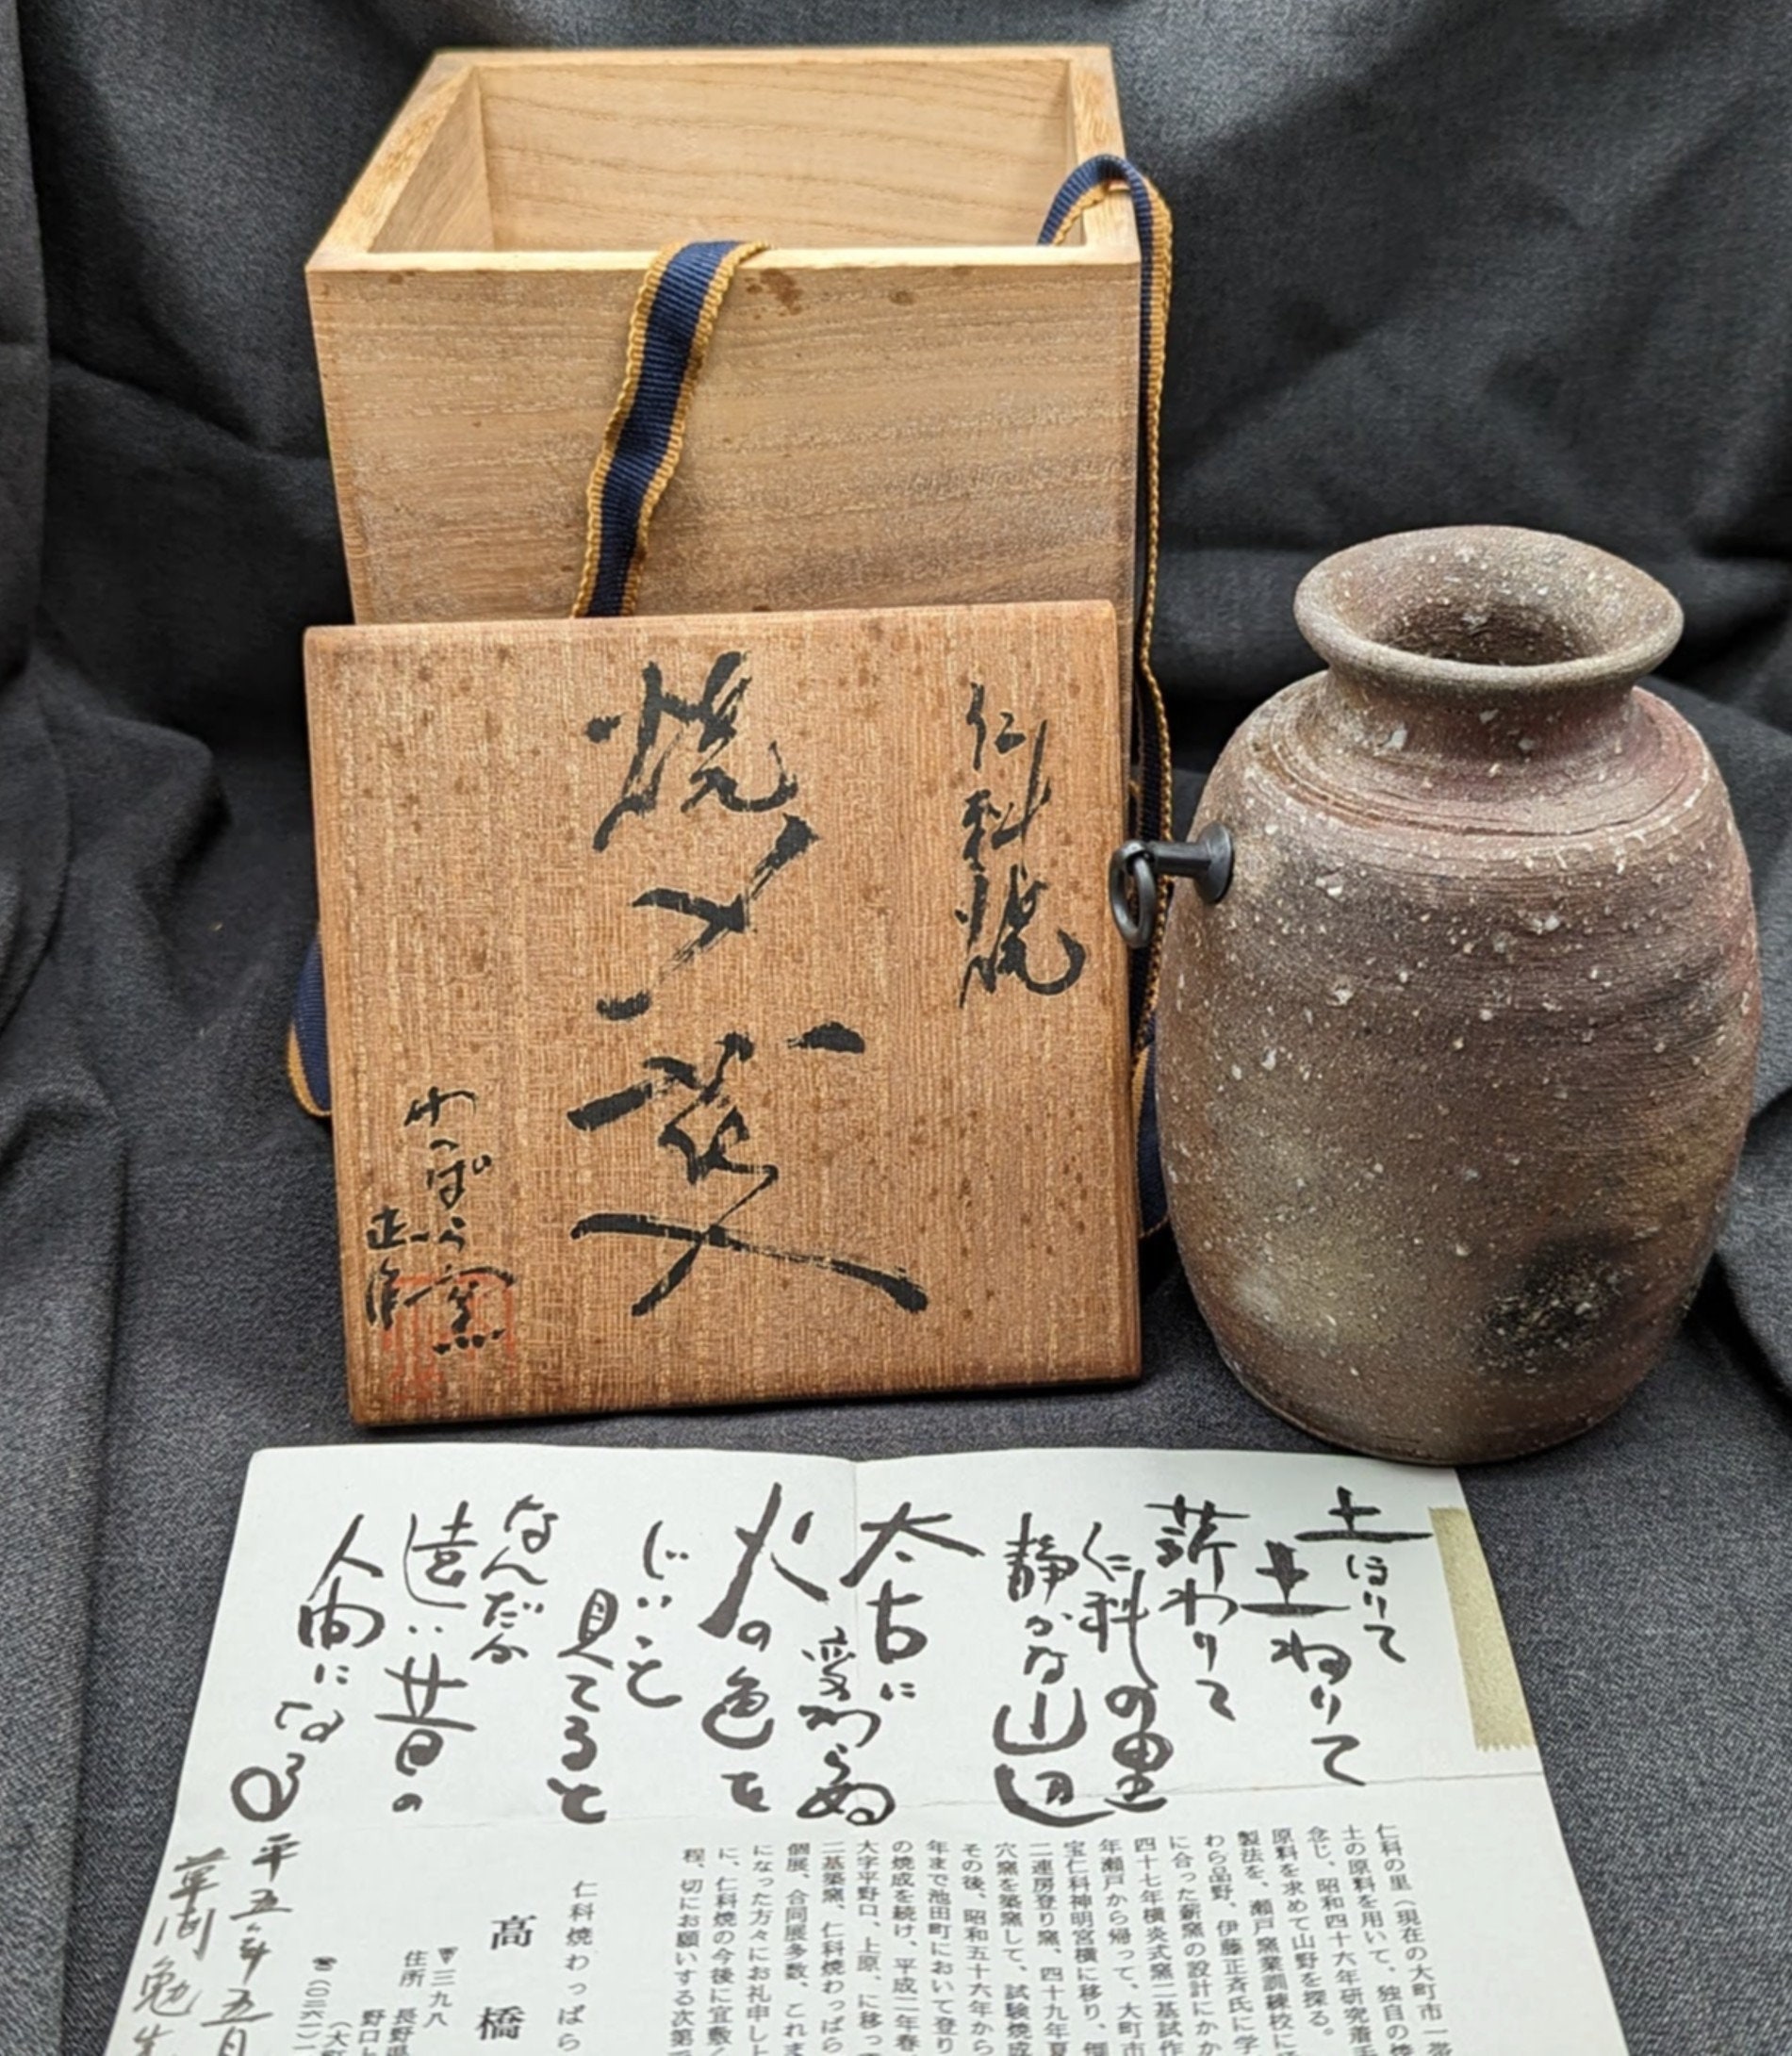 仁科焼
焼〆
花入
わっぱら窯
正作
土ほりて
土ねりて
薪わりて
仁科の里
静かな山辺
太古に
変わらぬ
火の色を
じいっと
見てると
なんだか
遠い昔の
人間になる
平五年五月
仁科の里(現在の大町市一帯
土の原料を用いて、独自の焼
念じ、昭和四十六年研究着手
原料を求めて山野を探る。
製法を、瀬戸窯業訓練校に
わら品野、伊藤正斉氏に学
に合った薪窯の設計にかか
四十七年横炎式窯二基試作
年瀬戸から帰って、大町市
宝仁科神明宮横に移り、
二連房登り窯、四十九年夏
穴窯を築窯して、試験焼成
その後、昭和五十六年から
年まで池田町において登り
の焼成を続け、平成二年春、
大字平野口、上原、に移っ
二基築窯、仁科焼わっぱら
個展、合同展多数、これま
になった方々にお礼申し上
に、仁科焼の今後に宜敷く
程、切にお願いする次第
仁科焼わっぱら
高橋
〒三九八
住所 長野県
野口上
(大町
☎(〇二六一)